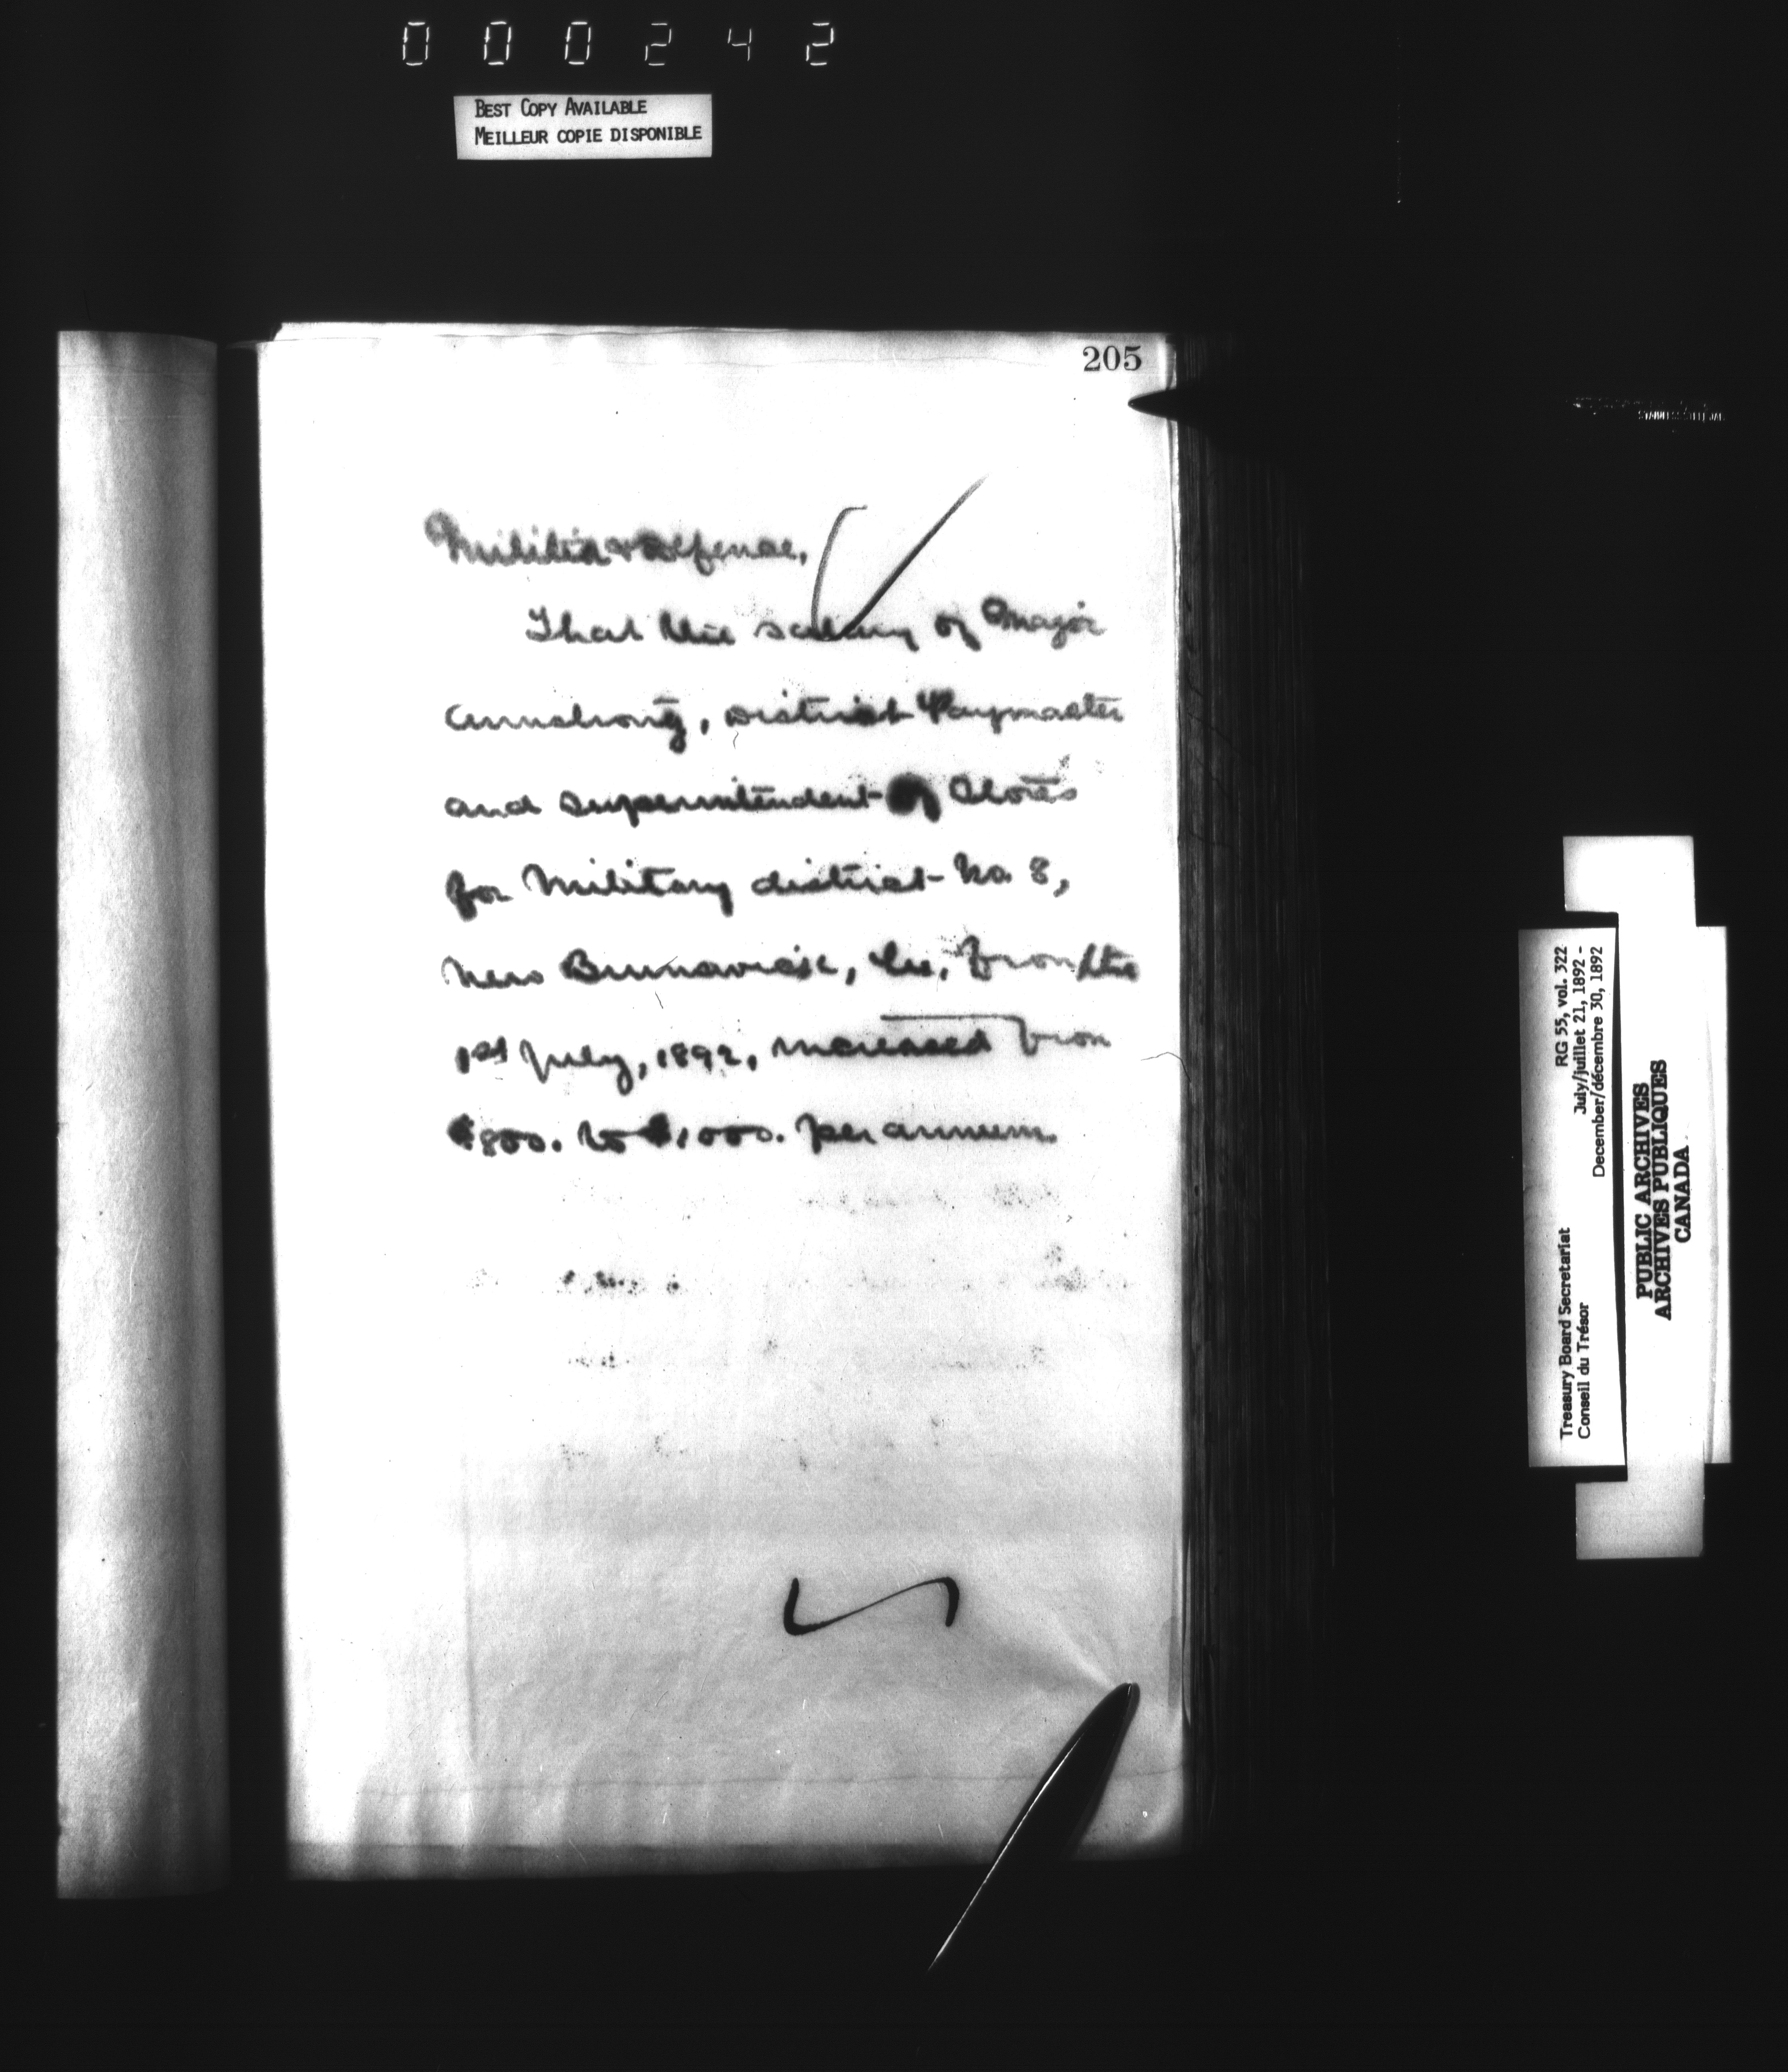 000242
BEST COPY AVAILABLE
MEILLEUR COPIE DISPONIBLE
205
Militia & Defence,
That the salary of Major
Armstrong, District Paymaster
and Superintendent of Stores
for Military district No. 8,
New Brunswick, be, from the
1st July, 1892, increased from
$800. to $1000. per annum.
RG 55, vol. 322
July/juillet 21, 1892 -
December/décembre 30, 1892
Treasury Board Secretariat
Conseil du Trésor
PUBLIC ARCHIVES
ARCHIVES PUBLIQUES
CANADA